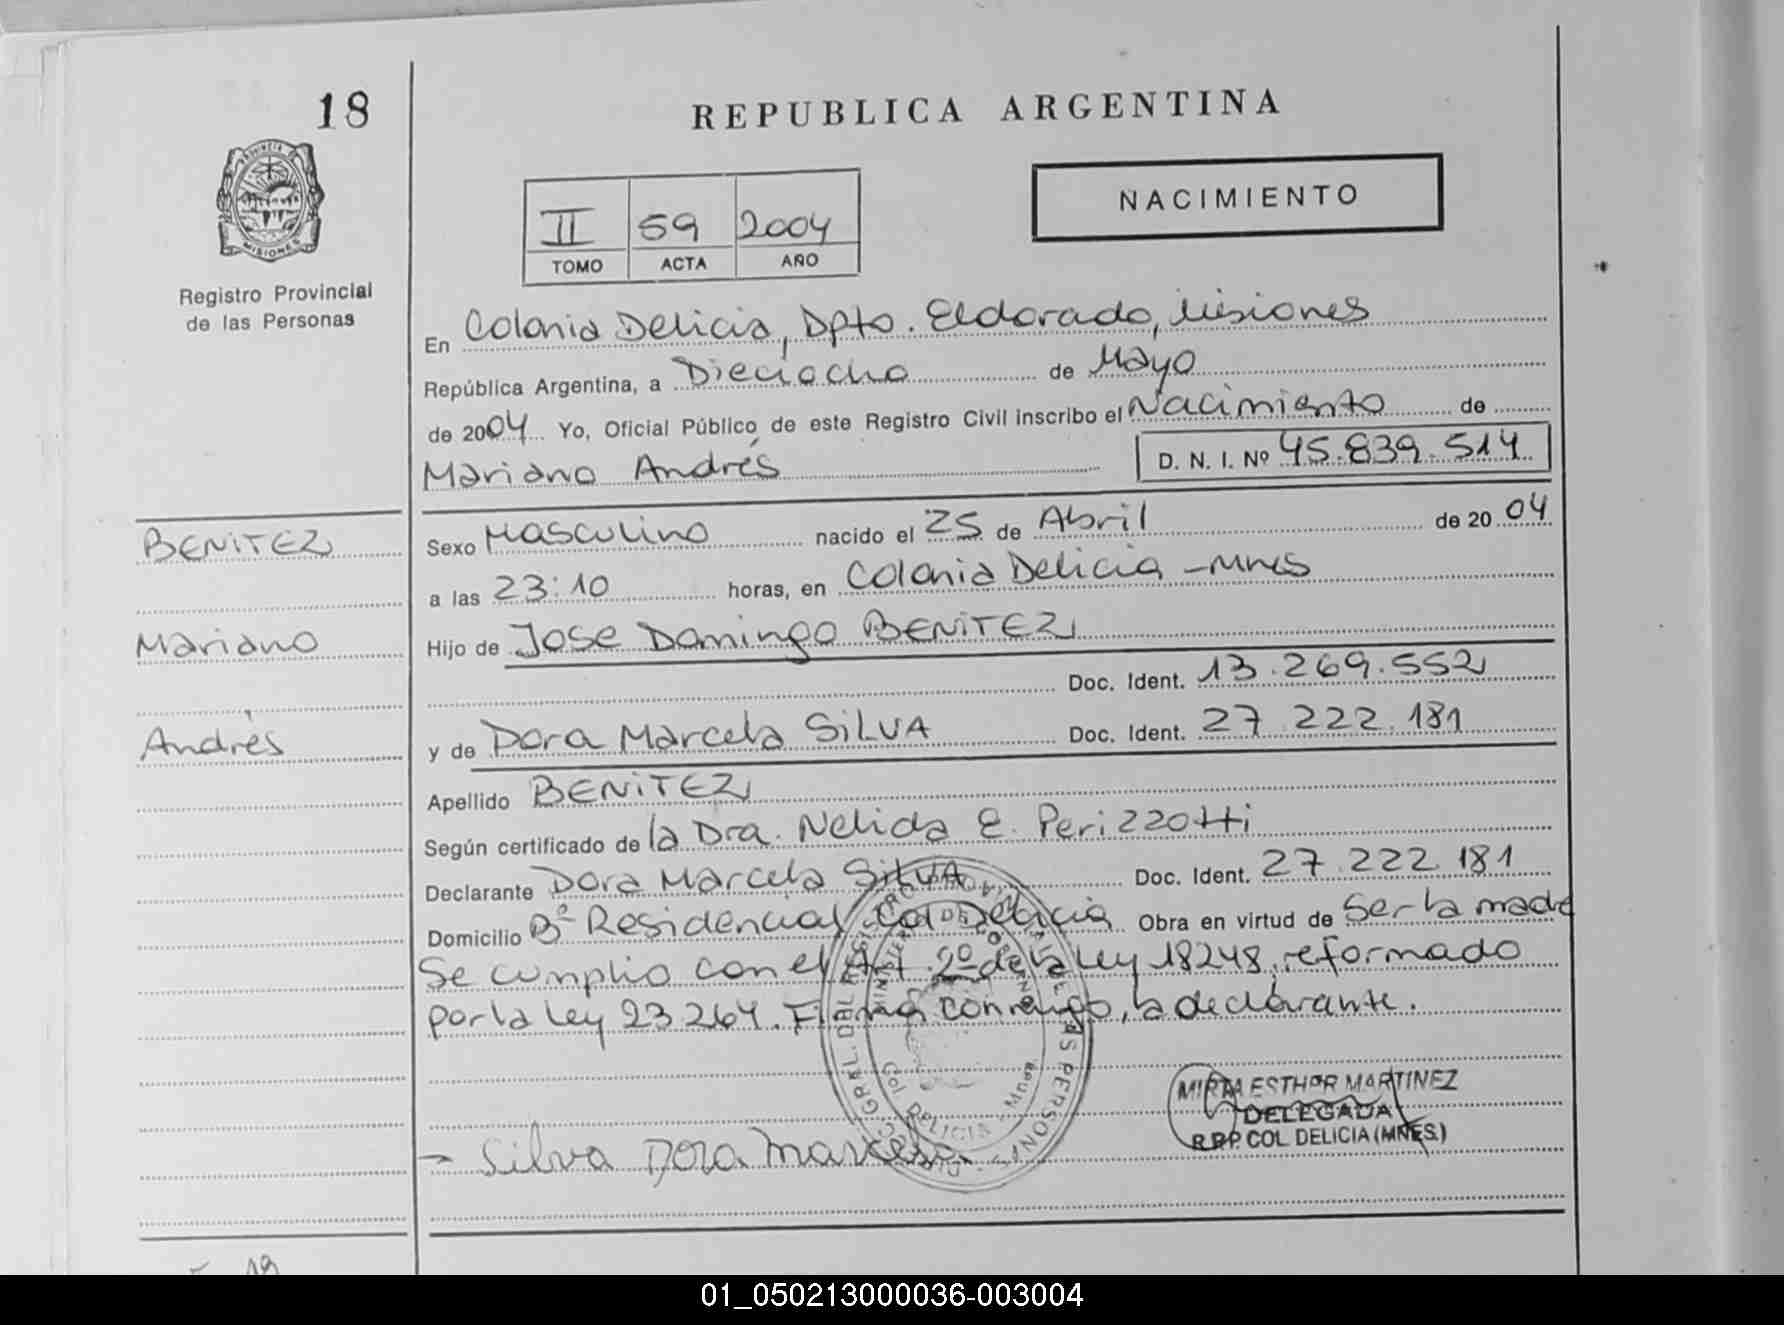 18
REPUBLICA ARGENTINA
PROVINCIA DE
MISIONES
Registro Provincial
de las Personas
II 59 2004
TOMO ACTA AÑO
NACIMIENTO
En Colonia Delicia, Dpto. Eldorado, Misiones
República Argentina, a Dieciocho de Mayo
de 2004 Yo, Oficial Público de este Registro Civil inscribo el Nacimiento de
Mariano Andrés D. N. I. Nº 45.839.514
BENITEZ
Mariano
Andrés
Sexo Masculino nacido el 25 de Abril de 2004
a las 23:10 horas, en Colonia Delicia - Mnes
Hijo de Jose Domingo BENITEZ
Doc. Ident. 13.269.552
y de Dora Marcela SILVA Doc. Ident. 27.222.181
Apellido BENITEZ
Según certificado de la Dra. Nelida E. Perizzotti
Declarante Dora Marcela SILVA Doc. Ident. 27.222.181
Domicilio Bº Residencial Col Delicia Obra en virtud de Ser la madre
Se cumplio con el Art. 2º de la Ley 18248, reformado
por la Ley 23264. Firma conmigo, la declarante.
MIRTA ESTHER MARTINEZ
DELEGADA
R.P.P. COL. DELICIA (MNES.)
Silva Dora Marcela
COL. DELICIA
19
01_050213000036-003004